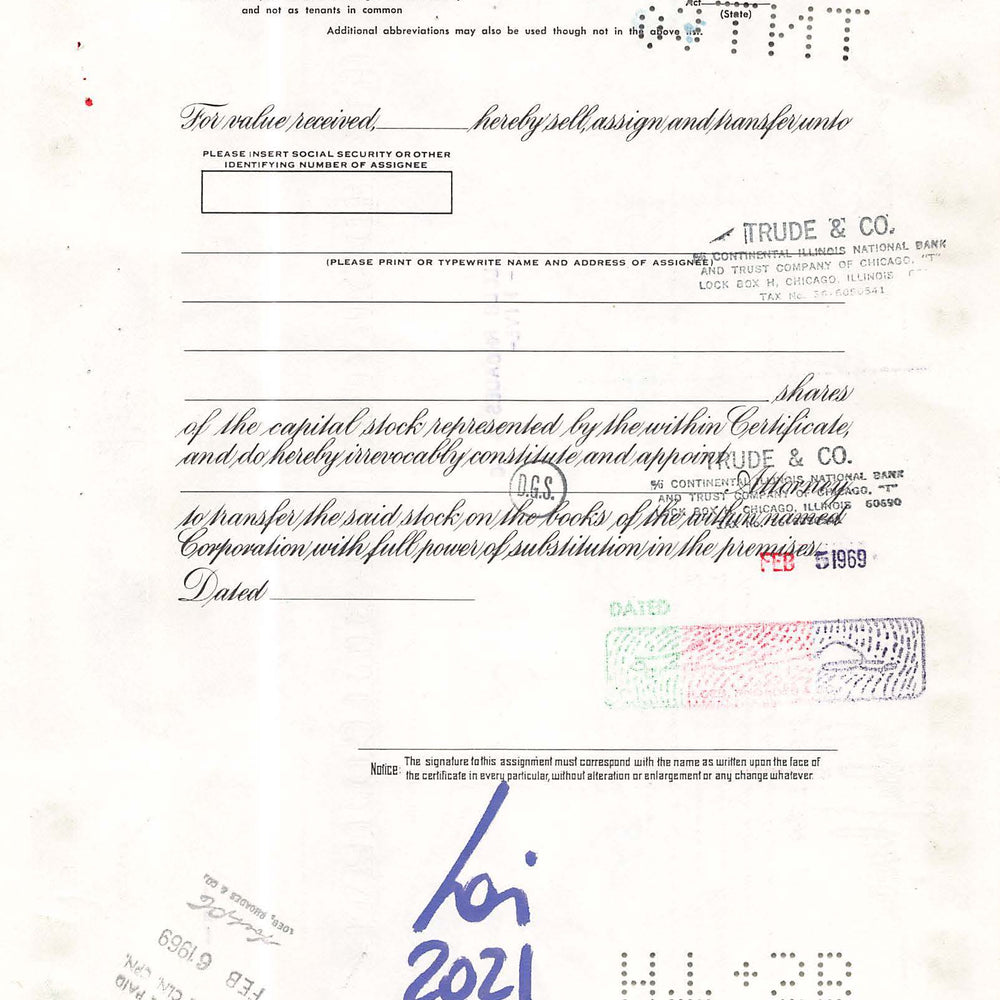 and not as tenants in common
Act
(State)
Additional abbreviations may also be used though not in the above
For value received, hereby sell, assign and transfer unto
PLEASE INSERT SOCIAL SECURITY OR OTHER
IDENTIFYING NUMBER OF ASSIGNEE
TRUDE & CO.
% CONTINENTAL ILLINOIS NATIONAL BANK
(PLEASE PRINT OR TYPEWRITE NAME AND ADDRESS OF ASSIGNEE)
AND TRUST COMPANY OF CHICAGO, "T"
LOCK BOX H, CHICAGO, ILLINOIS
TAX No.
shares
of the capital stock represented by the within Certificate,
and do hereby irrevocably constitute and appoint
TRUDE & CO.
% CONTINENTAL ILLINOIS NATIONAL BANK
D.G.S.
Attorney
AND TRUST COMPANY OF CHICAGO, "T"
LOCK BOX H, CHICAGO, ILLINOIS 60690
to transfer the said stock on the books of the within named
Corporation with full power of substitution in the premises.
FEB 5 1969
Dated
DATED
Notice: The signature to this assignment must correspond with the name as written upon the face of
the certificate in every particular, without alteration or enlargement or any change whatever.
2021
LOEB, RHOADES & CO.
FEB 6 1969
PAID